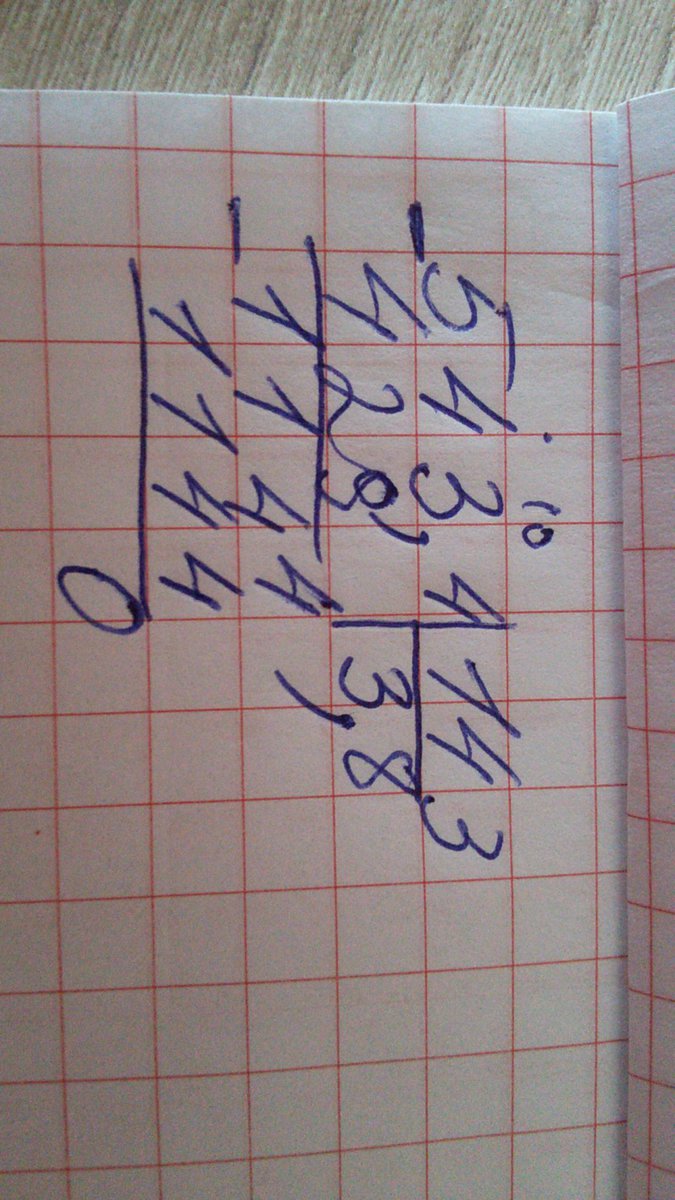 10
- 543,4 143
429 3,8
- 1144
1144
0